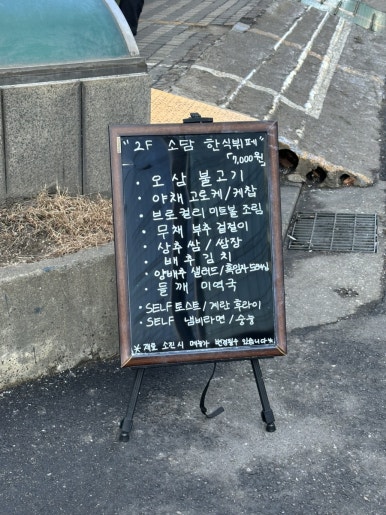 "2F 소담 한식뷔페"
「7,000원」
· 오삼불고기
· 야채고로케/케찹
· 브로컬리 미트볼 조림
· 무채 부추 겉절이
· 상추쌈/쌈장
· 배추김치
· 양배추 샐러드/흑임자 드레싱
· 들깨 미역국
· SELF 토스트/계란 후라이
· SELF 냄비라면/숭늉
※재료 소진시 메뉴가 변경될수 있습니다※